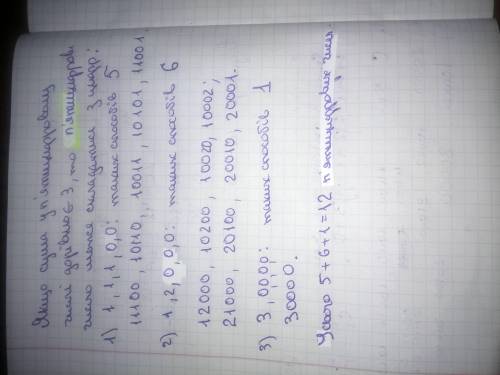 Якщо сума у п'ятицифровому
числі дорівнює 3, то п'ятицифрове
число може складатися з цифр:
1) 1, 1, 1, 0, 0: таких способів 5
11100, 10110, 10011, 10101, 11001
2) 1, 2, 0, 0, 0: таких способів 6
12000, 10200, 10020, 10002;
21000, 20100, 20010, 20001.
3) 3, 0, 0, 0, 0: таких способів 1
30000.
Усього 5+6+1=12 п'ятицифрових чисел.